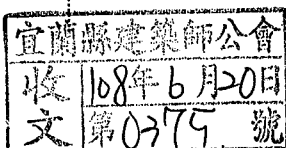 宜蘭縣建築師公會
收文
108年6月20日
第0375號